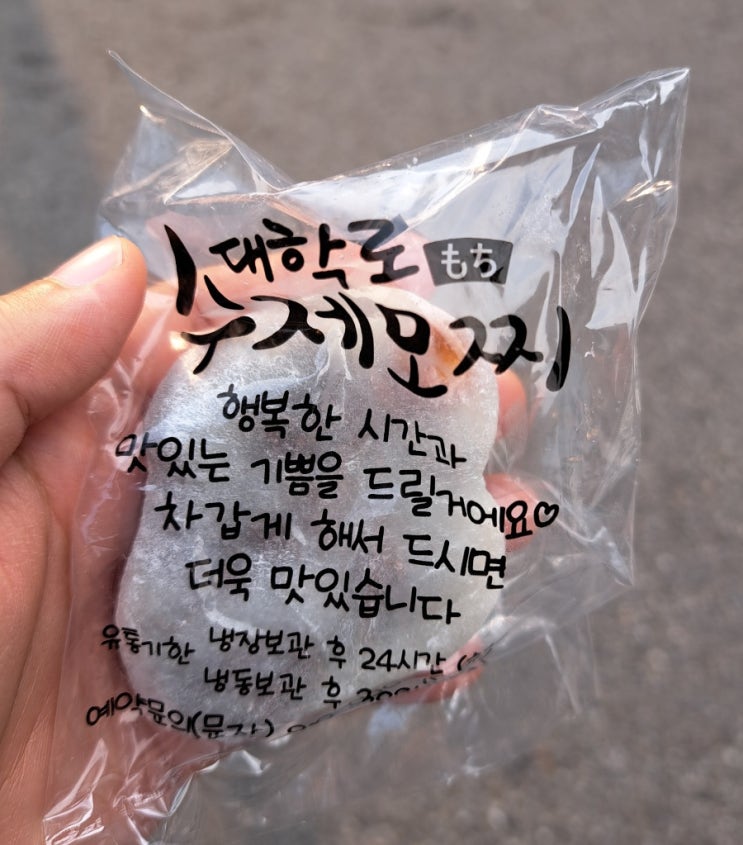 대학로 もち
수제모찌
행복한 시간과
맛있는 기쁨을 드릴거에요♡
차갑게 해서 드시면
더욱 맛있습니다
유통기한 냉장보관 후 24시간
냉동보관 후
예약문의(문자)